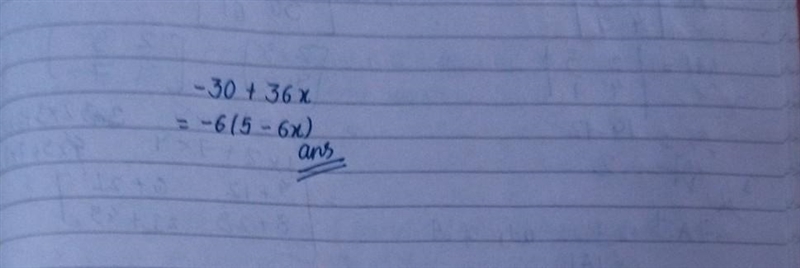 -30 + 36x
= -6(5 - 6x)
ans